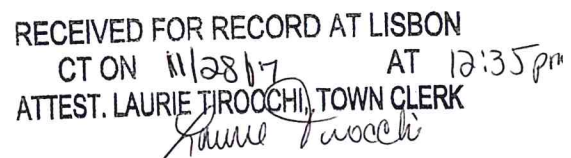 RECEIVED FOR RECORD AT LISBON
CT ON 11/28/17 AT 12:35 pm
ATTEST. LAURIE TIROCCHI, TOWN CLERK
Laurie Tirocchi